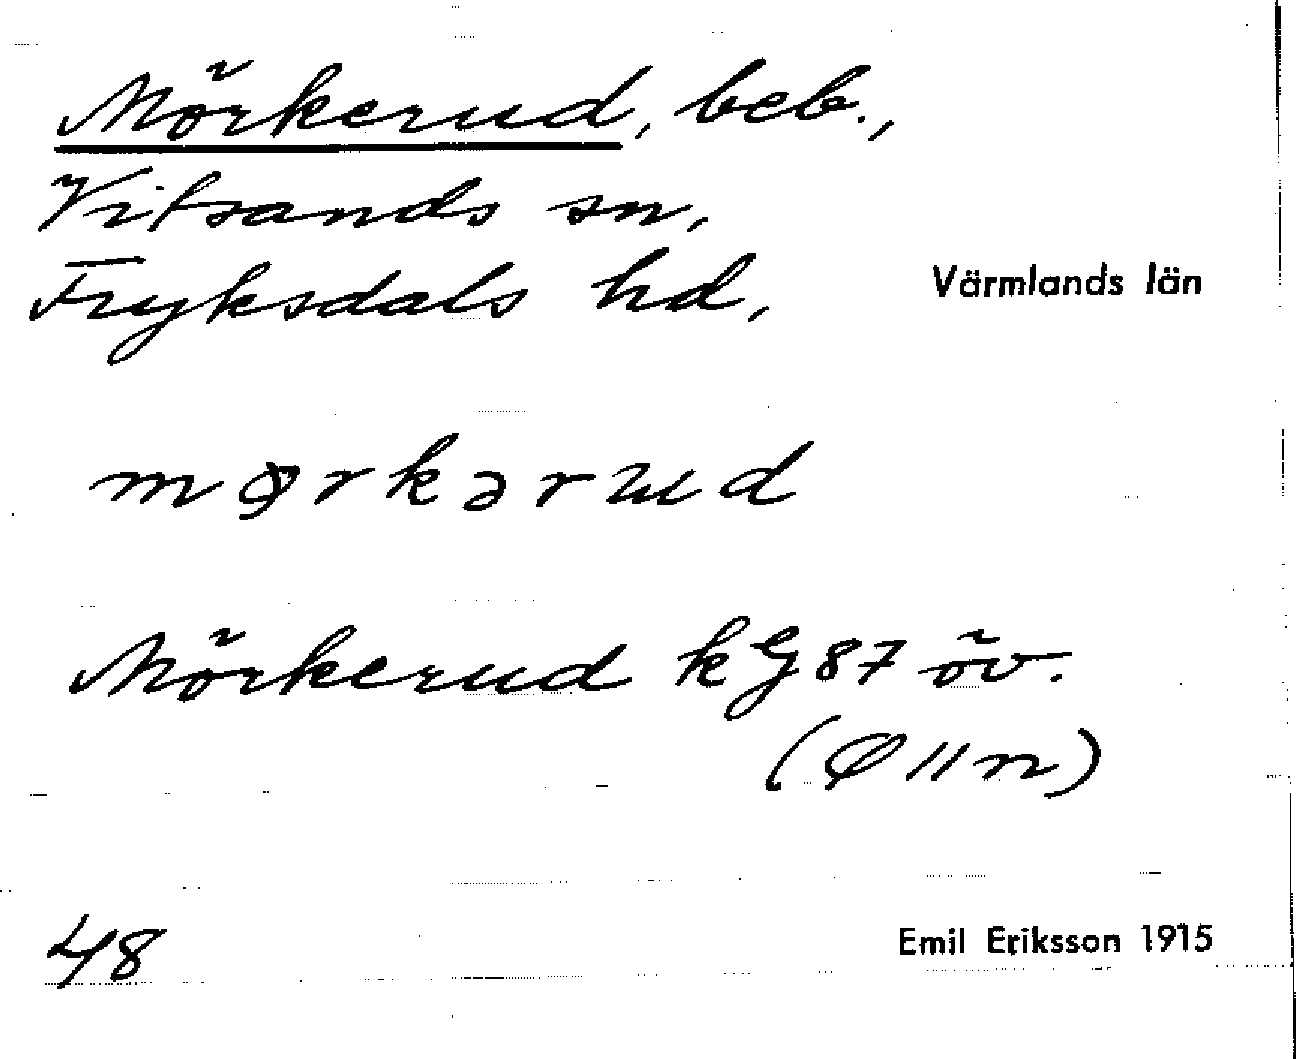 Mörkerud, beb.,
Vitsands sn,
Fryksdals hd,
Värmlands län
mørkərud
Mörkerud kG87 öv.
(Ø 11 n)
48
Emil Eriksson 1915